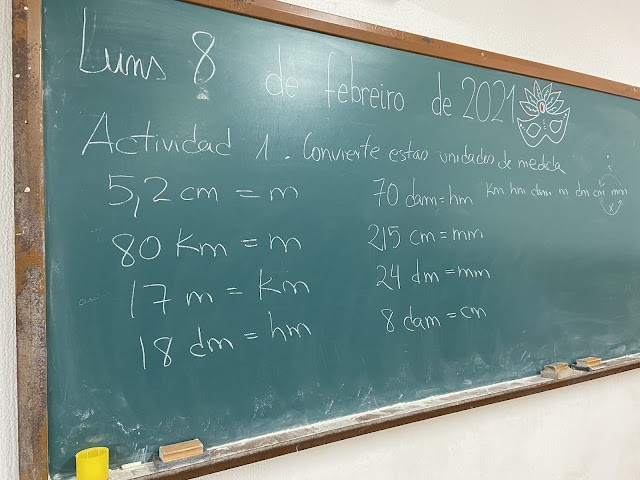 Luns 8 de febreiro de 2021
Actividad 1. Convierte estas unidades de medida
5,2 cm = m
80 Km = m
17 m = Km
18 dm = hm
70 dam = hm
215 cm = mm
24 dm = mm
8 dam = cm
Km hm dam m dm cm mm